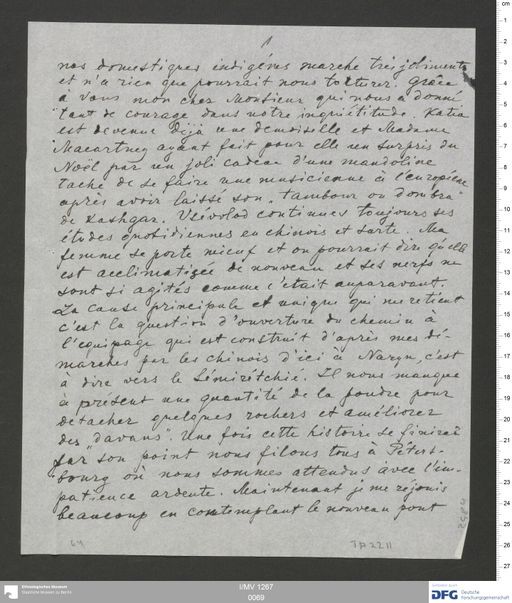 nos domestiques indigénes marche tres joliments
et n'a rien que pourrait nous torturer. Grâce
à Vous mon cher Monsieur qui nous a donné
tant de courage dans notre inquiétitude. Katia
est devenue déjà une demoiselle et Madame
Macartney ayant fait pour elle un surpris du
Noël par un joli cadeau d'une mandoline
tache de se faire une musicienne à l'européene
après avoir laissé son „tambour ou dombra"
de Kashgar. Vsévolod continues toujours ses
études quotidiennes en chinois et sarte. Ma
femme se porte mieuf et on pourrait dire qu'elle
est acclimatisée de nouveau et ses nerfs ne
sont si agités comme c'etait auparavant.
La cause principale et unique qui me retient
c'est la question d'ouverture du chemin à
l'equipage qui est construit d'aprés mes dé-
marches per les chinois d'ici à Naryn, c'est
a dire vers le Sémirétchié. Il nous manque
à présent une quantité de la poudre pour
detacher quelques rochers et améliorer
des „davans". Une fois cette histoire se finirai
par son point nous filons tous à Péters-
bourg où nous sommes attendus avec l'im-
patience ardente. Maintenant je me réjouis
beaucoup en contemplant le nouveau pont
I/MV 1267
0069
Ethnologisches Museum
Staatliche Museen zu Berlin
DFG
Deutsche
Forschungsgemeinschaft
cm
1
2
3
4
5
6
7
8
9
10
11
12
13
14
15
16
17
18
19
20
21
22
23
24
25
26
27